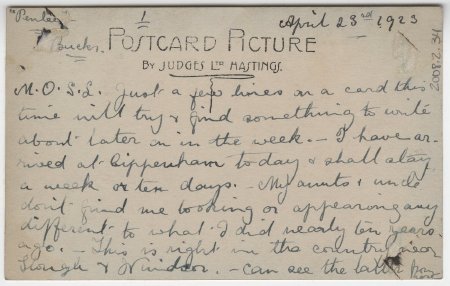 "Penlee"
Bucks.
April 23rd 1923
POSTCARD PICTURE
BY JUDGES LTD HASTINGS.
20082.34
M.O.S.L. Just a few lines on a card this
time will try & find something to write
about later on in the week. – I have ar-
rived at Cippenham today & shall stay
a week or ten days. – My aunts & uncle
don't find me looking or appearing any
different to what I did nearly ten years
ago. – This is right in the country near
Slough & Windsor. – Can see the latter from
here